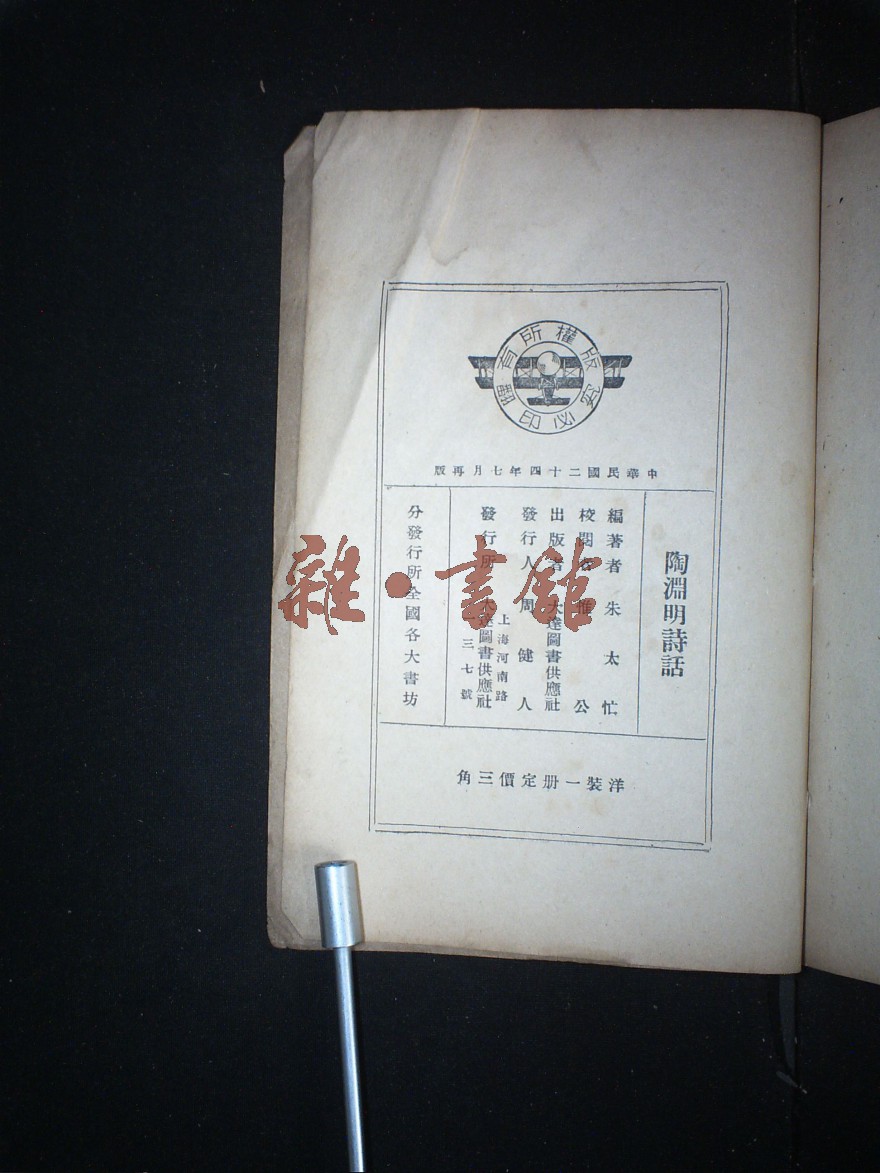 版權所有
翻印必究
中華民國二十四年七月再版
陶淵明詩話
編著者 朱太忙
校閱者 惟公
出版者 大達圖書供應社
發行人 周健人
上海河南路
發行所 大達圖書供應社
一三七號
分發行所全國各大書坊
洋裝一册定價三角
雜·書館